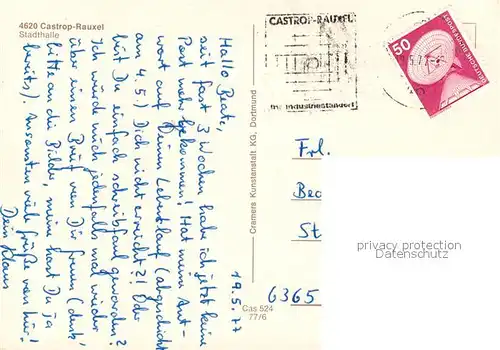 4620 Castrop-Rauxel
Stadthalle
19.5.77
Hallo Beate,
seit fast 3 Wochen habe ich jetzt keine
Post mehr bekommen! Hat meine Ant-
wort auf Deinen Lebenslauf (abgeschickt
am 4.5.) Dich nicht erreicht?! Oder
bist Du einfach schreibfaul geworden?
Ich würde mich jedenfalls mal wieder
über einen Brief von Dir freuen (denk'
bitte an die Bilder, meine hast Du ja
bereits). Ansonsten viele Grüße von hier!
Dein Klaus
Cramers Kunstanstalt. KG, Dortmund
Cas 524
77/6
CASTROP-RAUXEL
Ihr Industriestandort
50
DEUTSCHE BUNDESPOST
Frl.
Bea
St
6365
privacy protection